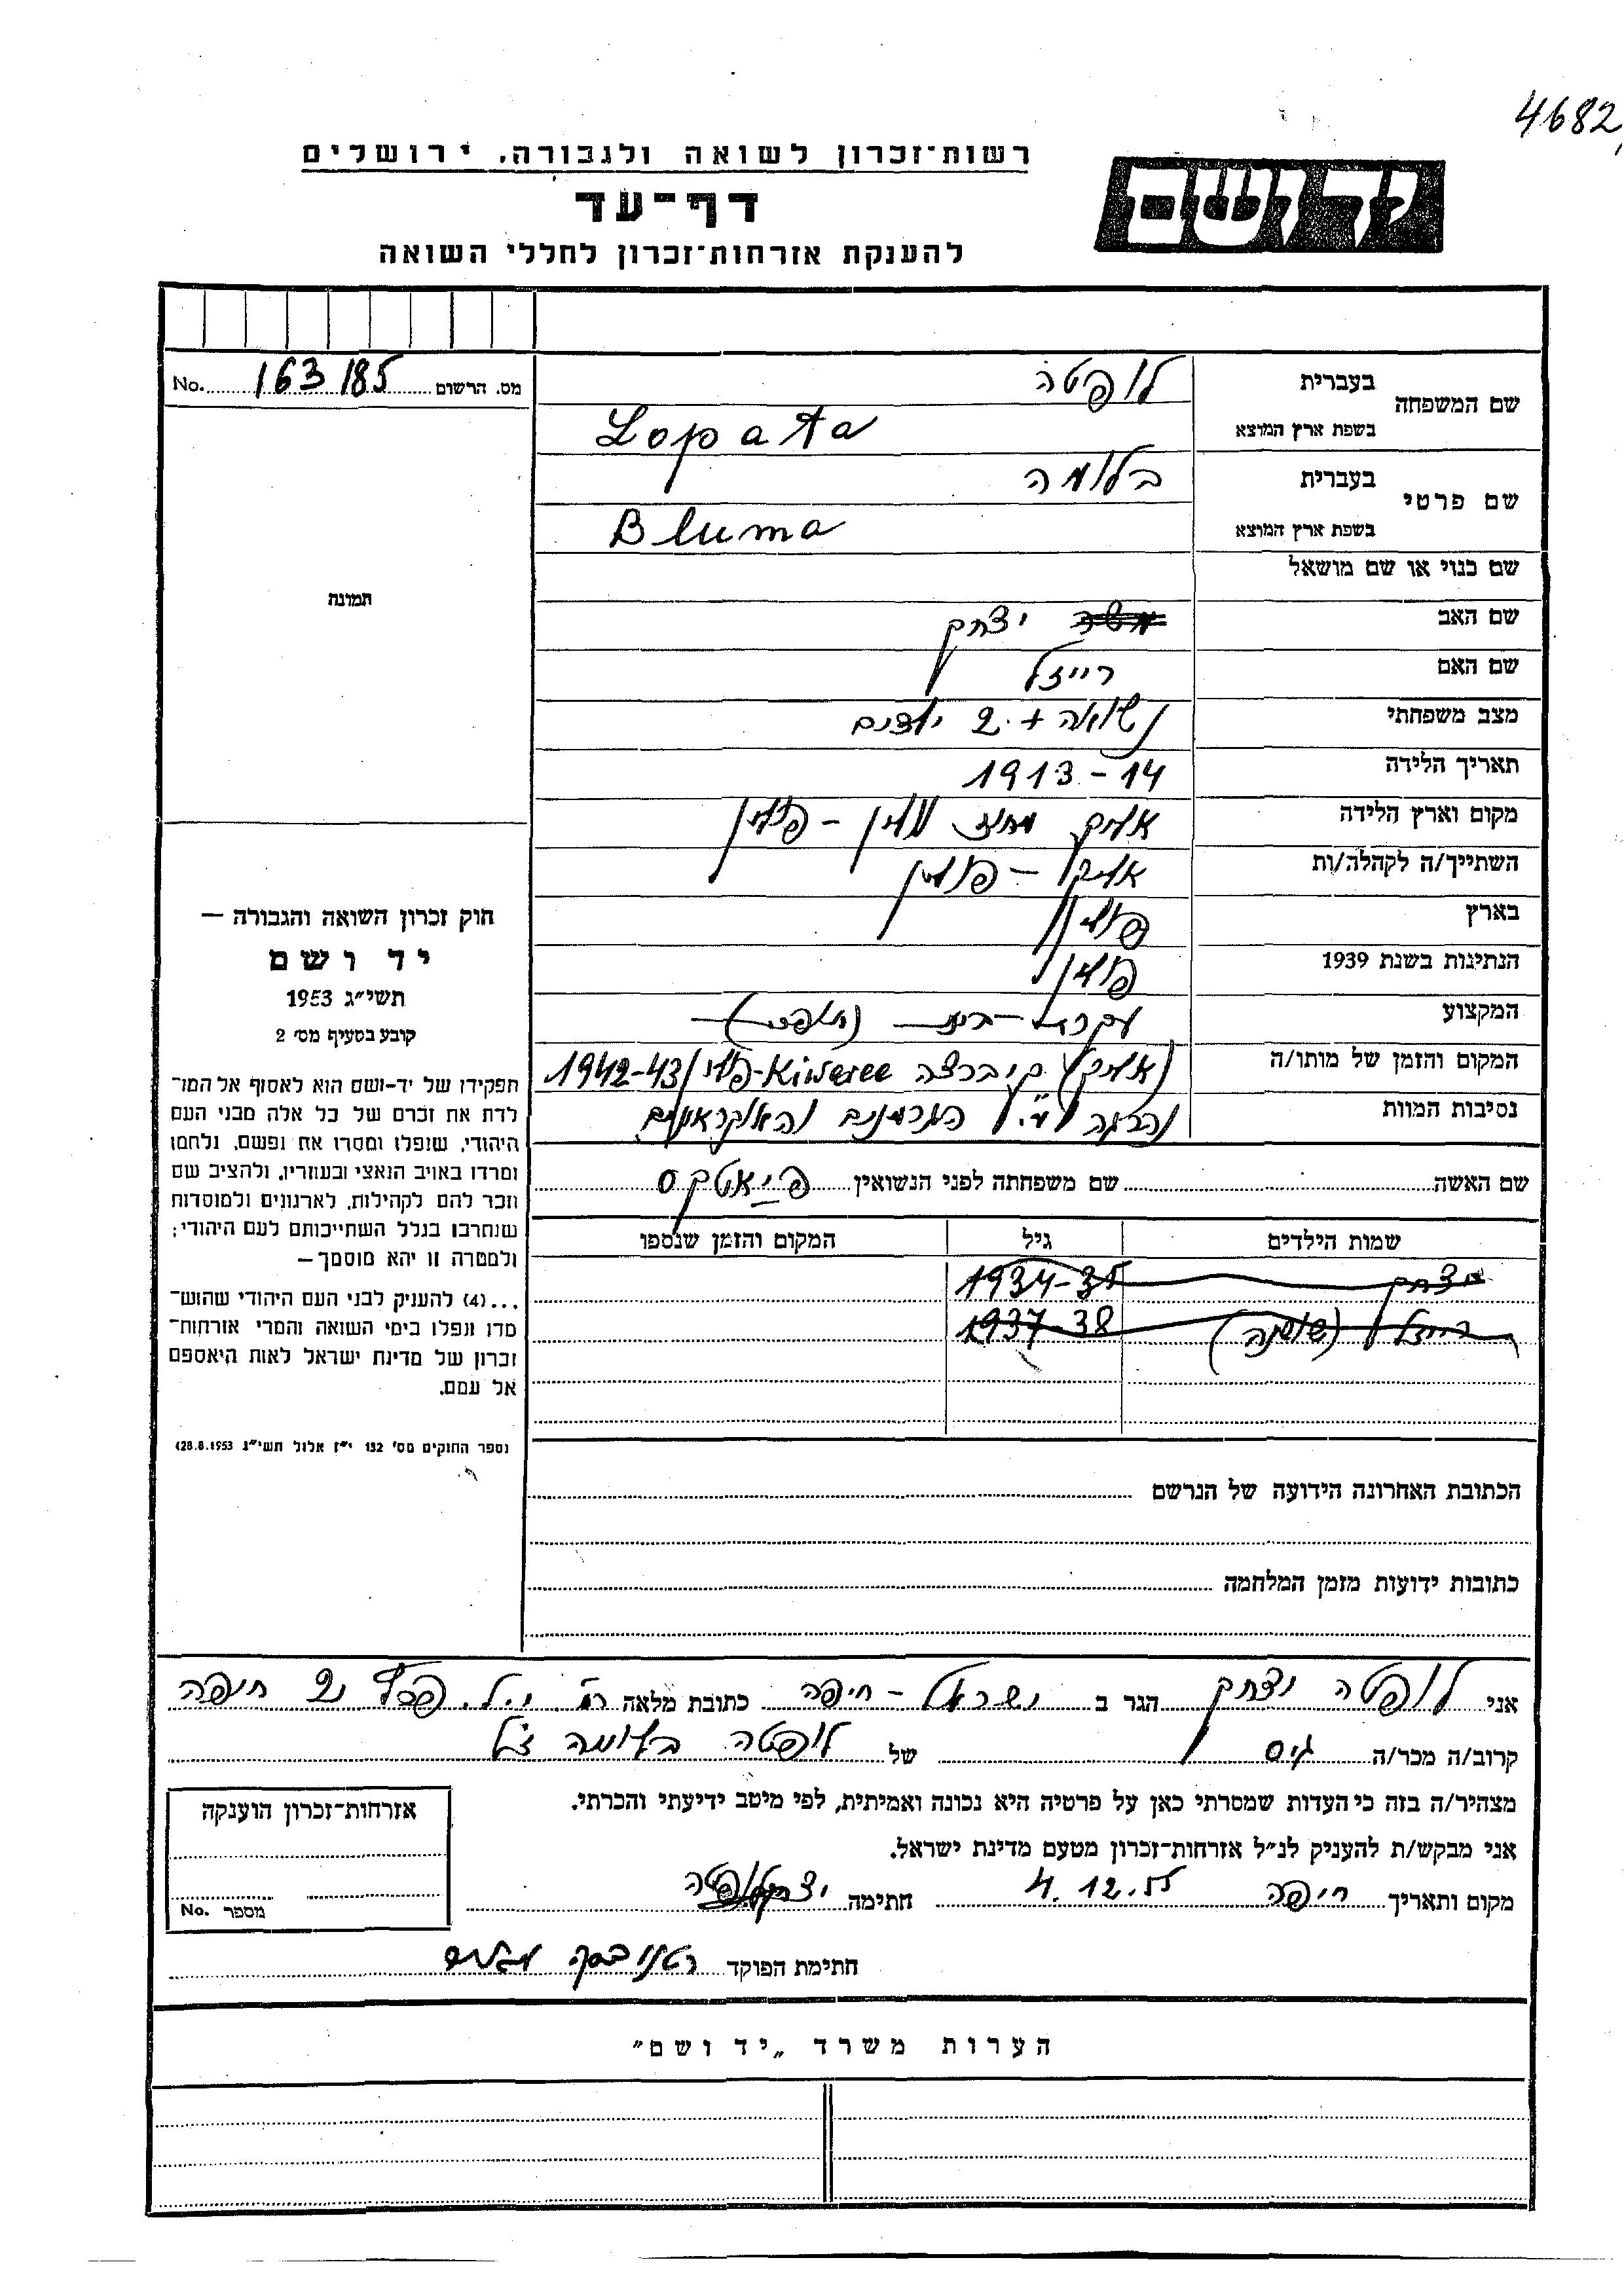 4682
רשות־זכרון לשואה ולגבורה, ירושלים
יד ושם
דף־עד
להענקת אזרחות־זכרון לחללי השואה
מס. הרשום 163185 No.
שם המשפחה
בעברית לופטה
בשפת ארץ המוצא Lopata
שם פרטי
בעברית בלומה
בשפת ארץ המוצא Bluma
שם כנוי או שם מושאל
שם האב משה יצחק
שם האם רייזל
מצב משפחתי נשואה + 2 ילדים
תאריך הלידה 1913-14
מקום וארץ הלידה מחוז וולין – פולין
השתייך/ה לקהלה/ות – פולין
בארץ פולין
הנתינות בשנת 1939 פולין
המקצוע עקרת־בית
המקום והזמן של מותו/ה קיברצה 1942-43
נסיבות המוות נהרגה ע"י הגרמנים והאוקראינים
שם האשה שם משפחתה לפני הנשואין
שמות הילדים גיל המקום והזמן שנספו
יצחק 1934-35
רייזל (שושנה) 1937-38
הכתובת האחרונה הידועה של הנרשם
כתובות ידועות מזמן המלחמה
תמונה
חוק זכרון השואה והגבורה —
יד ושם
תשי"ג 1953
קובע בסעיף מס׳ 2
תפקידו של יד-ושם הוא לאסוף אל המו־
לדת את זכרם של כל אלה מבני העם
היהודי, שנפלו ומסרו את נפשם, נלחמו
ומרדו באויב הנאצי ובעוזריו, ולהציב שם
וזכר להם לקהילות, לארגונים ולמוסדות
שנחרבו בגלל השתייכותם לעם היהודי;
ולמטרה זו יהא מוסמך—
...(4) להעניק לבני העם היהודי שהוש־
מדו ונפלו בימי השואה והמרי אזרחות־
זכרון של מדינת ישראל לאות היאספם
אל עמם.
(ספר החוקים מס׳ 132 י"ז אלול תשי"ג 28.8.1953)
אני לופטה יצחק הגר ב ישראל – חיפה כתובת מלאה רח׳ י.ל. פרץ חיפה
קרוב/ה מכר/ה גיס של לופטה בלומה ז"ל
מצהיר/ה בזה כי העדות שמסרתי כאן על פרטיה היא נכונה ואמיתית, לפי מיטב ידיעתי והכרתי.
אני מבקש/ת להעניק לנ"ל אזרחות־זכרון מטעם מדינת ישראל.
מקום ותאריך חיפה 4.12.55 חתימה יצחק לופטה
חתימת הפוקד
אזרחות־זכרון הוענקה
מספר No.
הערות משרד „יד ושם"